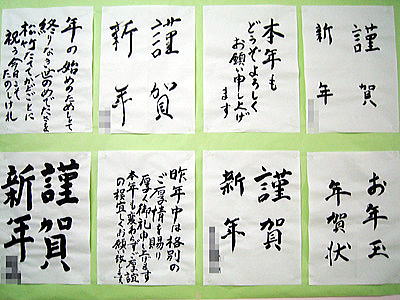 年の始めのためしとて
終りなき世のめでたさを
松竹たてゝかどごとに
祝う今日こそ
たのしけれ
謹賀
新年
本年も
どうぞよろしく
お願い申し上げ
ます
謹賀
新年
謹賀
新年
昨年中は格別の
ご厚情を賜り
厚く御礼申し上げます
本年も変わらぬご厚誼
の程宜しくお願い致します
謹賀
新年
お年玉
年賀状